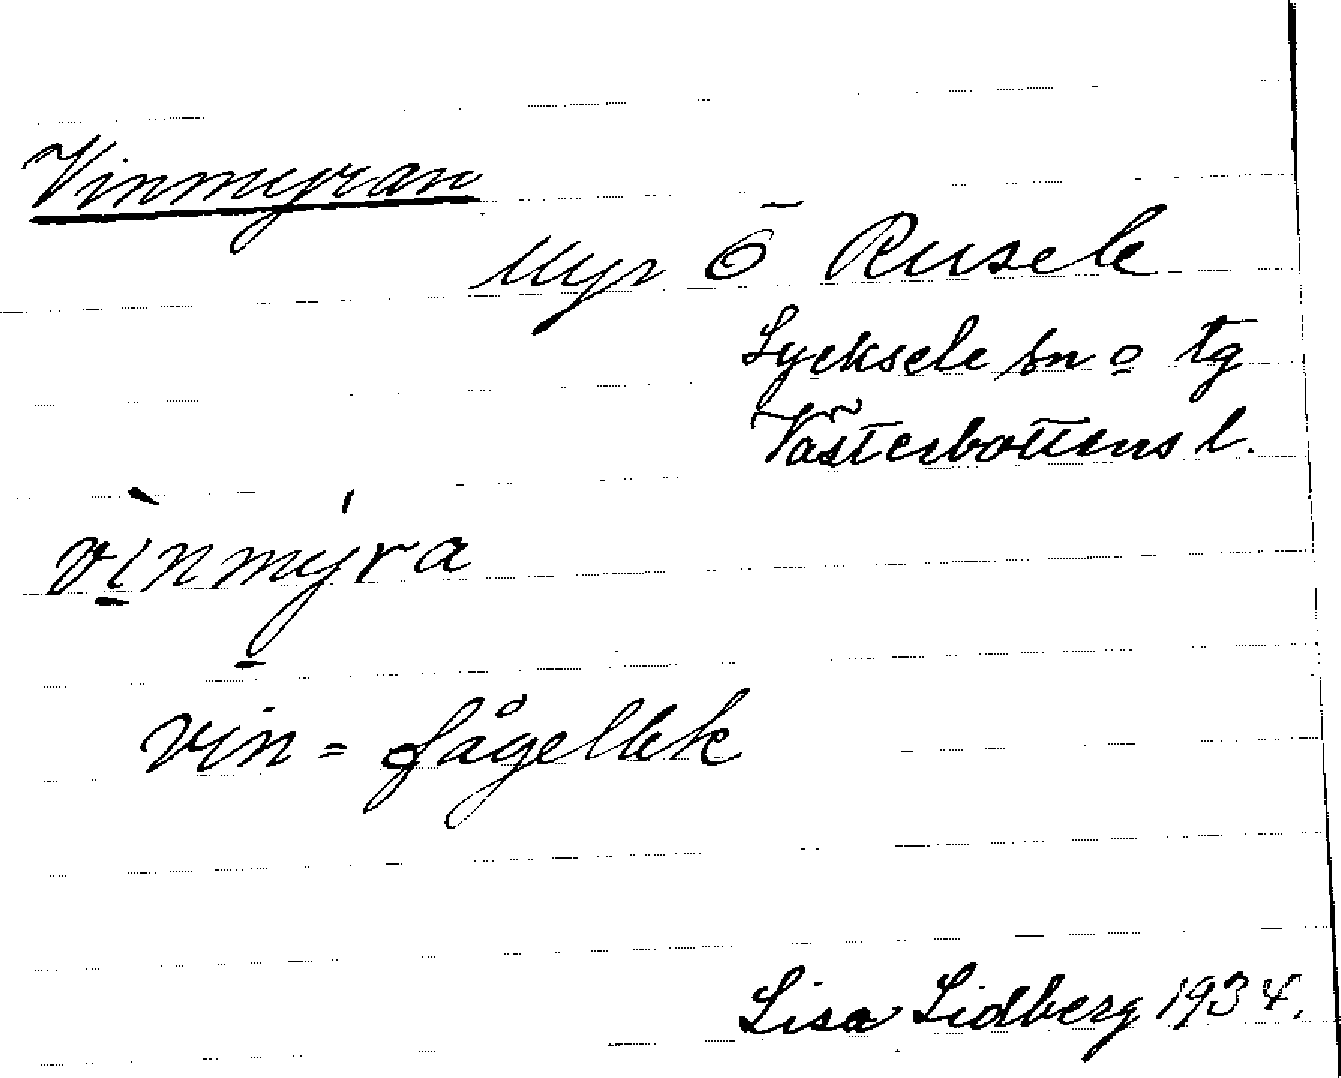 Vinmyran
Myr Ö Rusele
Lycksele sn o tg
Västerbottens l.
vìnmýra
vin = fågellek
Lisa Lidberg 1934.